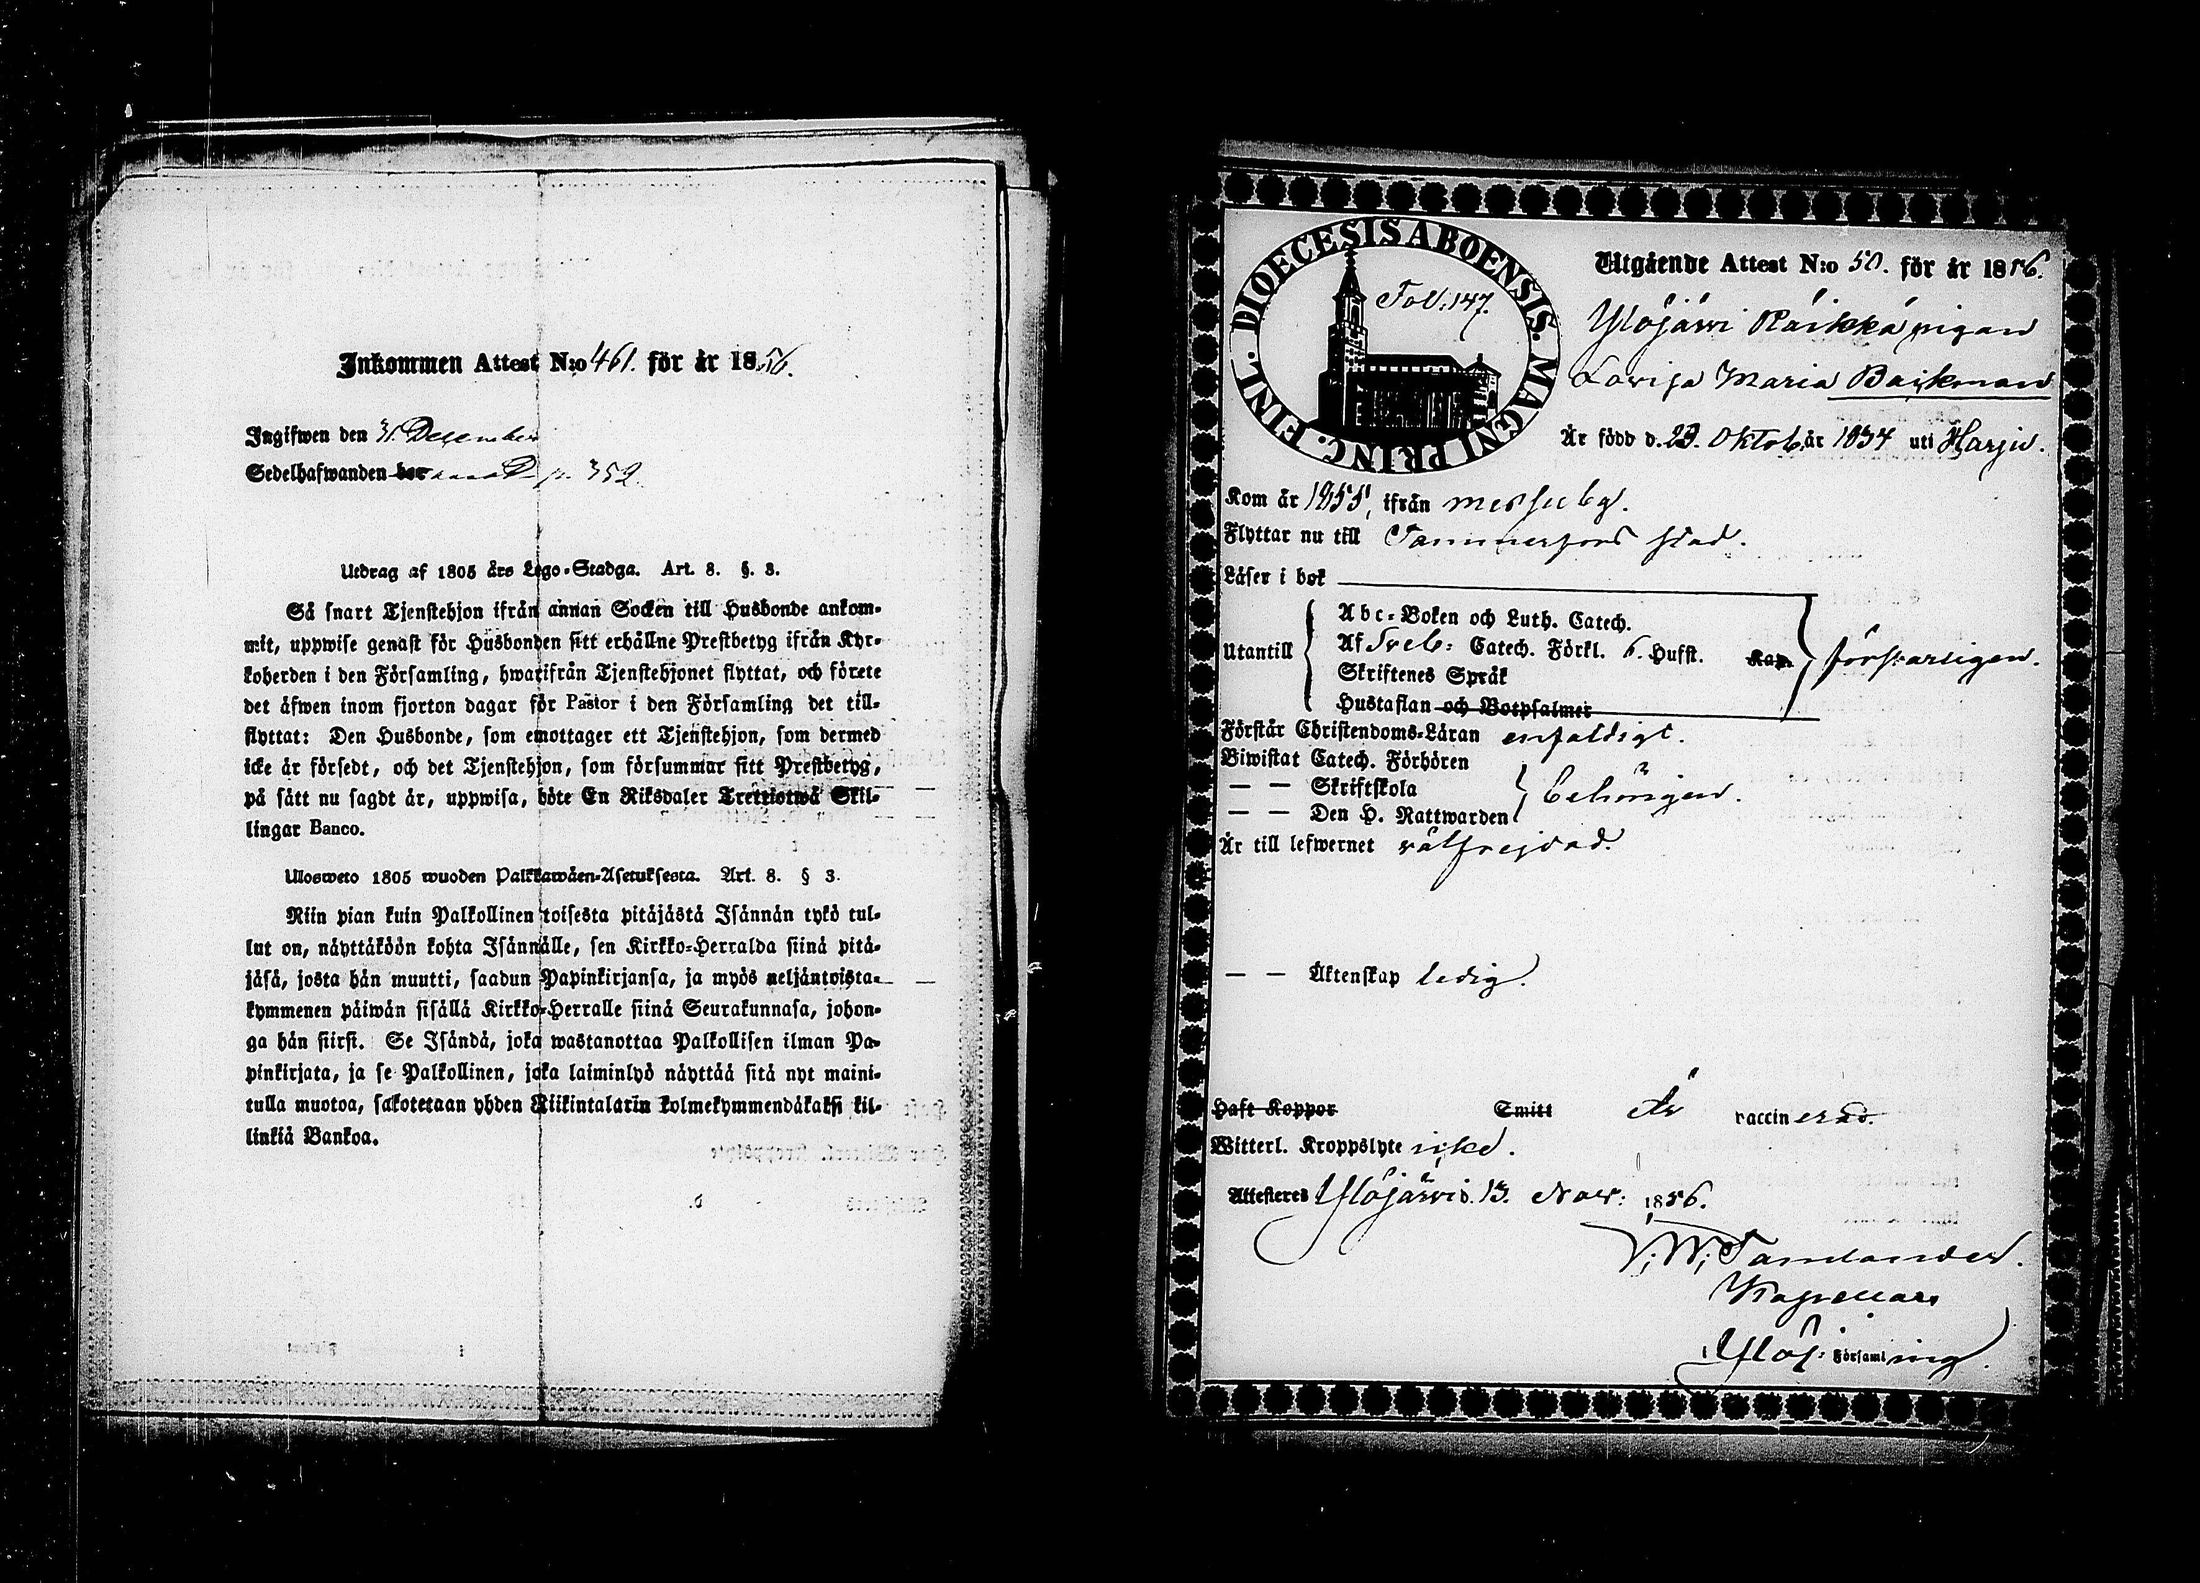 Inkommen Attest N:o 461. för år 1856.
Ingifwen den 31. December
Sedelhafwanden p. 352.
Utdrag af 1805 års Lego-Stadga. Art. 8. §. 3.
Så snart Tjenstehjon ifrån annan Socken till Husbonde ankom-
mit, uppwise genast för Husbonden sitt erhållne Prestbetyg ifrån Kyr-
koherden i den Församling, hwarifrån Tjenstehjonet flyttat, och förete
det äfwen inom fjorton dagar för Pastor i den Församling det till-
flyttat: Den Husbonde, som emottager ett Tjenstehjon, som dermed
icke är försedt, och det Tjenstehjon, som försummar sitt Prestbetyg,
på sätt nu sagdt är, uppwisa, böte En Riksdaler Trettiotwå Skil-
lingar Banco.
Ulosweto 1805 wuoden Palkkawäen-Asetuksesta. Art. 8. § 3.
Niin pian kuin Palkollinen toisesta pitäjästä Isännän tykö tul-
lut on, näyttäköön kohta Isännälle, sen Kirkko-Herralda siinä pitä-
jäsä, josta hän muutti, saadun Papinkirjansa, ja myös neljäntoista-
kymmenen päiwän sisällä Kirkko-Herralle siinä Seurakunnasa, johon-
ga hän siirst. Se Isändä, joka wastanottaa Palkollisen ilman Pa-
pinkirjata, ja se Palkollinen, joka laiminlyö näyttää sitä nyt maini-
tulla muotoa, sakotetaan yhden Riikintalarin kolmekymmendäkaksi kil-
linkiä Bankoa.
DIOECESIS ABOENSIS. MAGNI PRINC. FINL.
Fol: 147.
Utgående Attest N:o 50. för år 1856.
Ylöjärwi Räikkä pigan
Lovisa Maria Backman
Är född d. 23. Oktob. år 1834 uti Harju.
Kom år 1855, ifrån Messuby.
Flyttar nu till Tammerfors stad.
Läser i bok
Utantill
Abc-Boken och Luth. Catech.
Af Sveb: Catech. Förkl. 6. Hufst. Kap.
Skriftenes Språk
Hustaflan och Botpsalmer
försvarligen.
Förstår Christendoms-Läran enfaldigt.
Biwistat Catech. Förhören
— — Skriftskola
— — Den H. Nattwarden
behörigen.
Är till lefwernet välfrejdad.
— — Äktenskap ledig.
Haft Koppor Smitt Är vaccinerad.
Witterl. Kroppslyte icke.
Attesteres Ylöjärwi d. 13. Nov: 1856.
Kapellan
Ylöj: Församling.